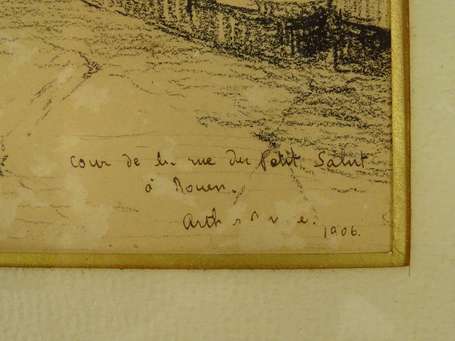 Cour de la rue du Petit Salut
à Rouen.
1906.